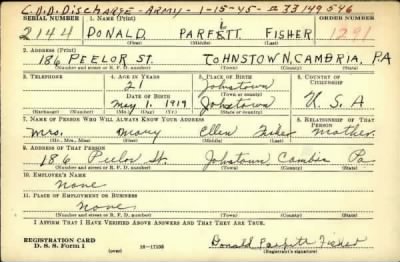 C.D.D. Discharge - Army - 1-15-45 - # 33149546
SERIAL NUMBER 1. NAME (Print) ORDER NUMBER
2144 DONALD PARFETT FISHER 1291
(First) (Middle) (Last)
2. ADDRESS (Print)
186 PEELOR ST. JOHNSTOWN, CAMBRIA, PA
(Number and street or R. F. D. number) (Town) (County) (State)
3. TELEPHONE 4. AGE IN YEARS 5. PLACE OF BIRTH 6. COUNTRY OF CITIZENSHIP
21 Johnstown
DATE OF BIRTH (Town or county)
May 1, 1919 Johnstown U. S. A
(Exchange) (Number) (Mo.) (Day) (Yr.) (State or country)
7. NAME OF PERSON WHO WILL ALWAYS KNOW YOUR ADDRESS 8. RELATIONSHIP OF THAT PERSON
Mrs. Mary Ellen Fisher Mother
(Mr., Mrs., Miss) (First) (Middle) (Last)
9. ADDRESS OF THAT PERSON
186 Peelor St. Johnstown Cambria Pa
(Number and street or R. F. D. number) (Town) (County) (State)
10. EMPLOYER'S NAME
None
11. PLACE OF EMPLOYMENT OR BUSINESS
None
(Number and street or R. F. D. number) (Town) (County) (State)
I AFFIRM THAT I HAVE VERIFIED ABOVE ANSWERS AND THAT THEY ARE TRUE.
REGISTRATION CARD
D. S. S. Form 1 16-17105 Donald Parfitt Fisher
(Registrant's signature)